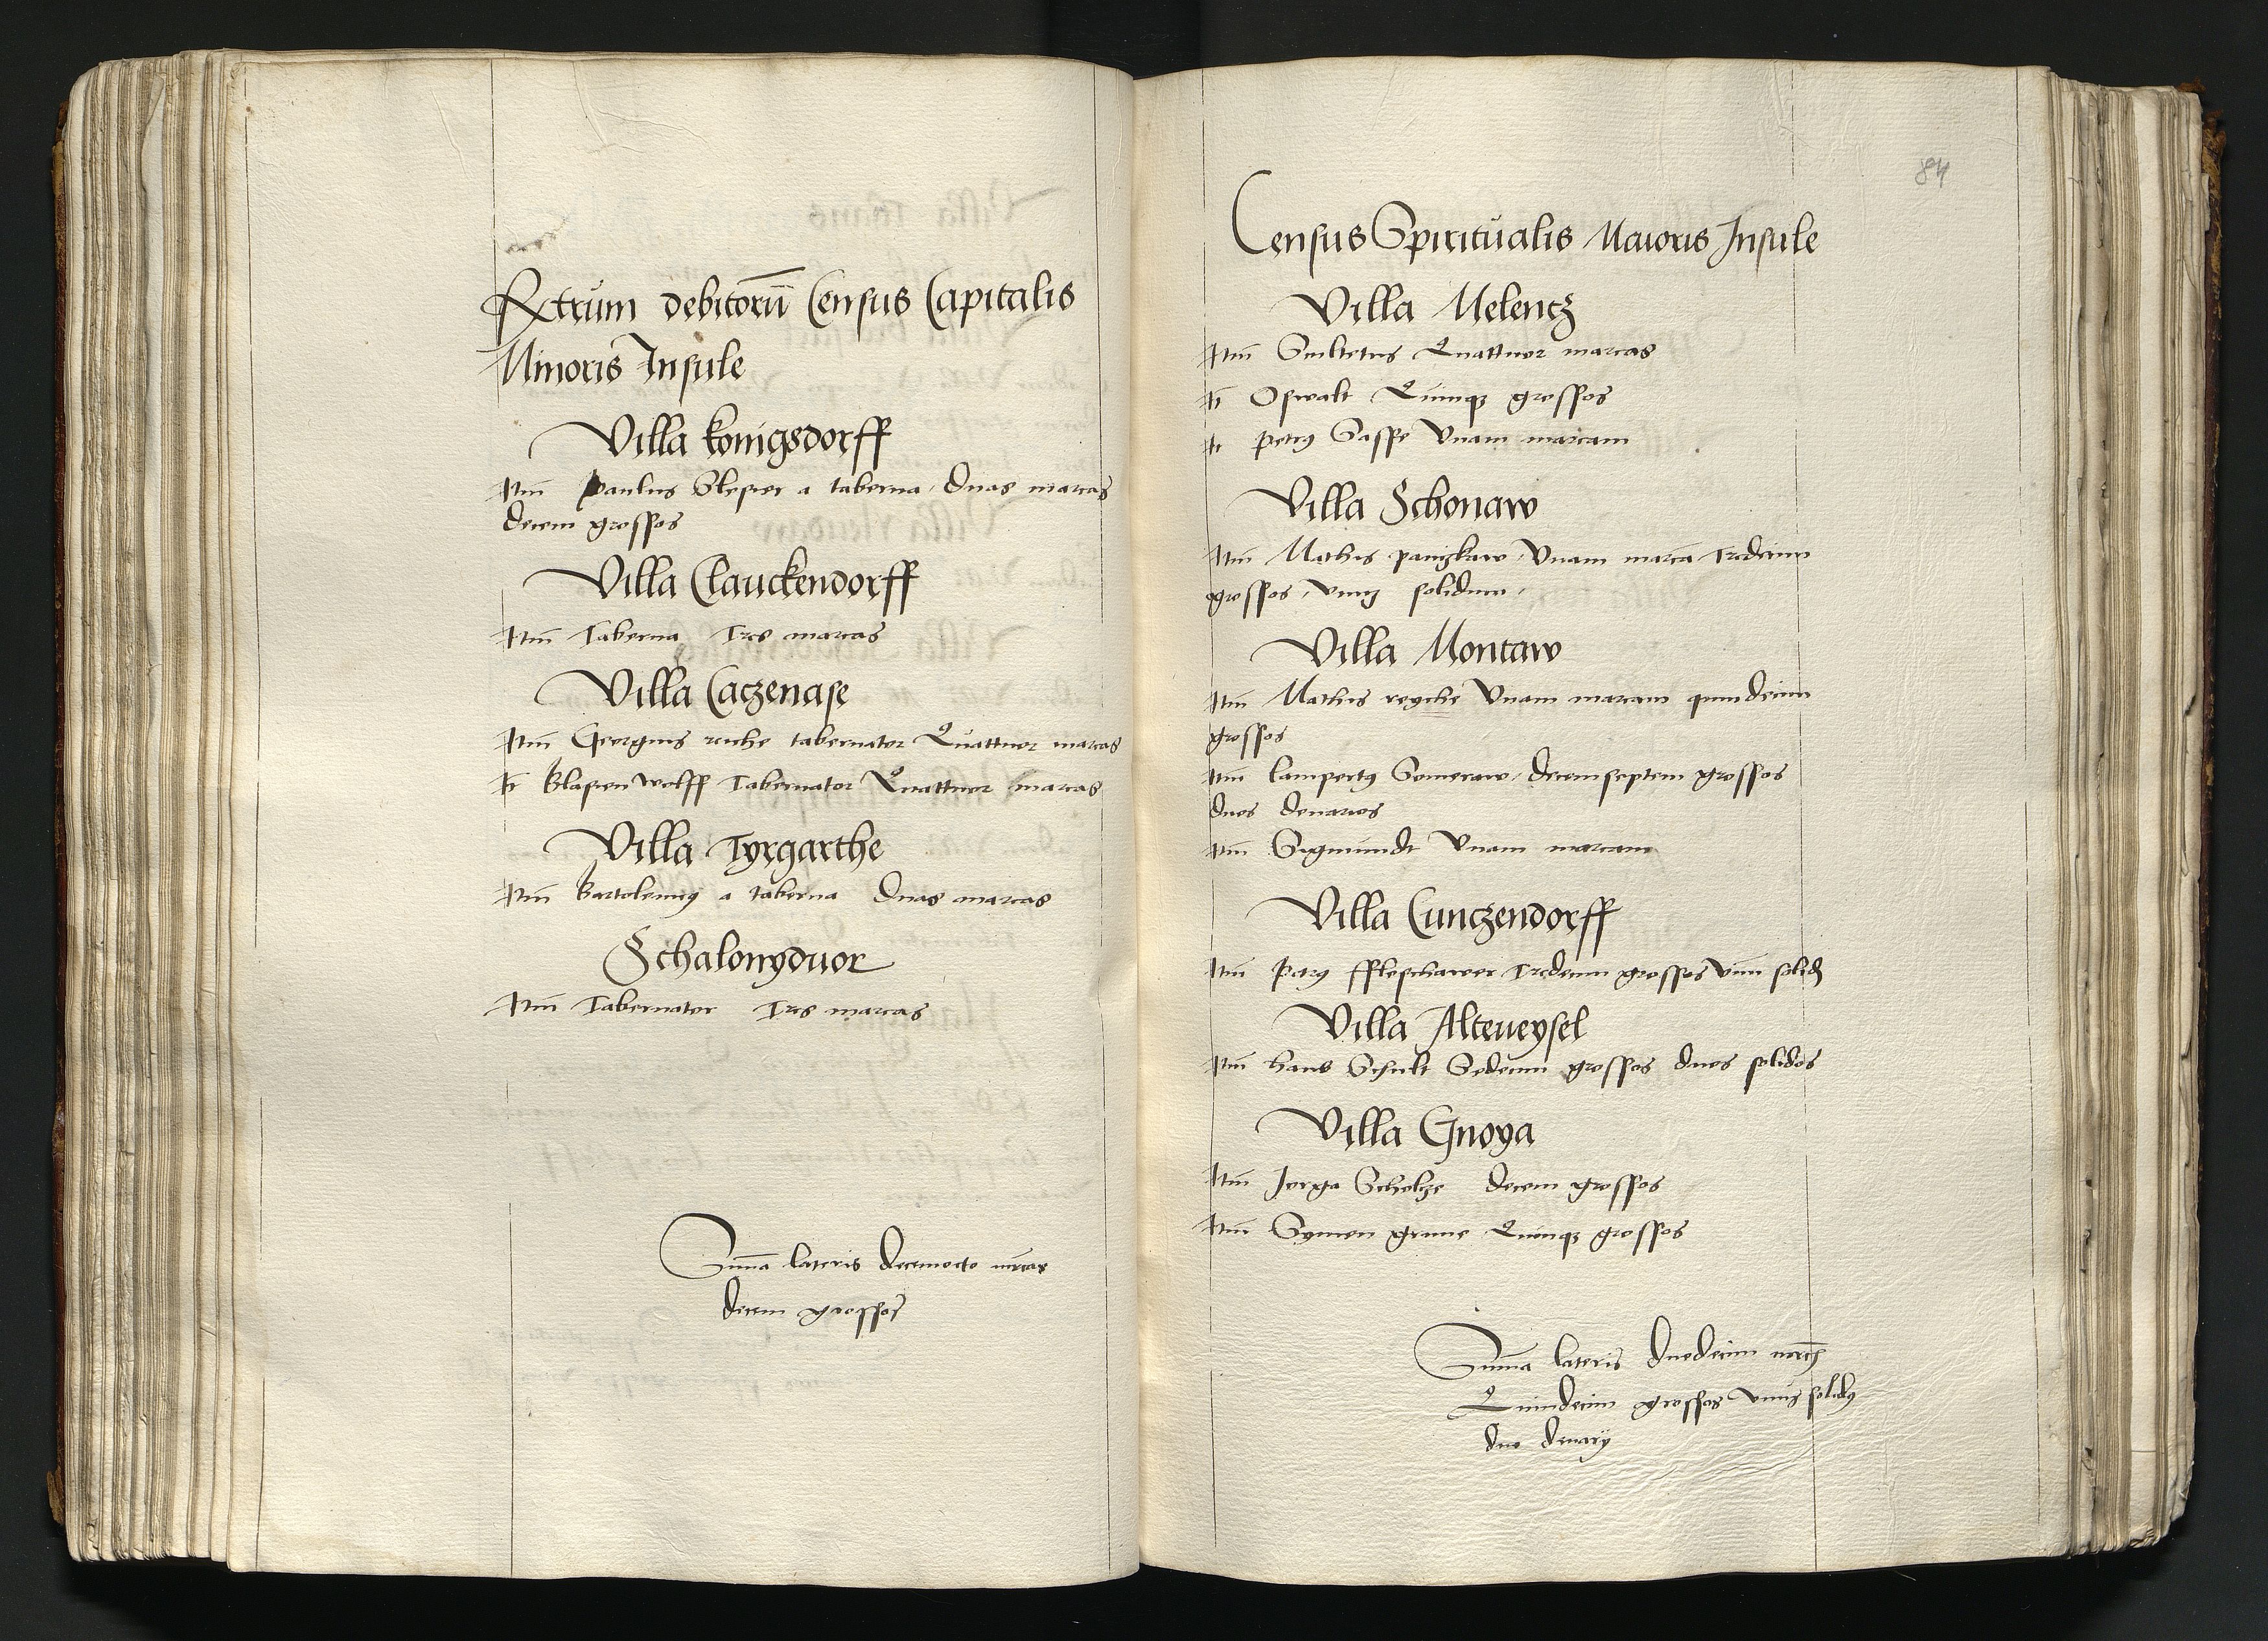 Rectrum debitorū Census Capitalis
Minoris Insule
Villa konigsdorff
Itm̄ Paulus Slesier a taberna Duas marcas
decem grossos
Villa Clauckendorff
Itm̄ Taberna Tres marcas
Villa Caczenase
Itm̄ Georgius reiche tabernator Quattuor marcas
It̄ Blasien Wolff Tabernator Quattuor marcas
Villa Tyrgarthe
Itm̄ Bartolemeꝰ a taberna Duas marcas
Schalonyduor
Itm̄ Tabernator Tres marcas
Sum̄a lateris decemocto m̄rcas
decem grossos
84
Census Spiritualis Maioris Insule
Villa Melencz
Itm̄ Scultetus Quattuor marcas
It̄ Oswalt Quinqꝫ grossos
It̄ Petrꝰ Sasse Vnam marcam
Villa Schonaw
Itm̄ Mathis panczkaw Vnam marcā Tredecim
grossos vnuꝫ solidum
Villa Montaw
Itm̄ Mathis reyche Vnam marcam quindecim
grossos
Itm̄ lampertꝰ Someraw decemseptem grossos
duos denarios
Itm̄ Sigmundt Vnam marcam
Villa Cunczendorff
Itm̄ Petrꝰ ffleschawer Tredecim grossos vnū solid
Villa Alteueysel
Itm̄ hans Schult Sedecim grossos duos solidos
Villa Gnoya
Itm̄ Jorge Scholcze decem grossos
Itm̄ Symon grune Quinqꝫ grossos
Sum̄a lateris duodecim m̄rc
Quindecim grossos vnuꝫ solidꝰ
duo denarij